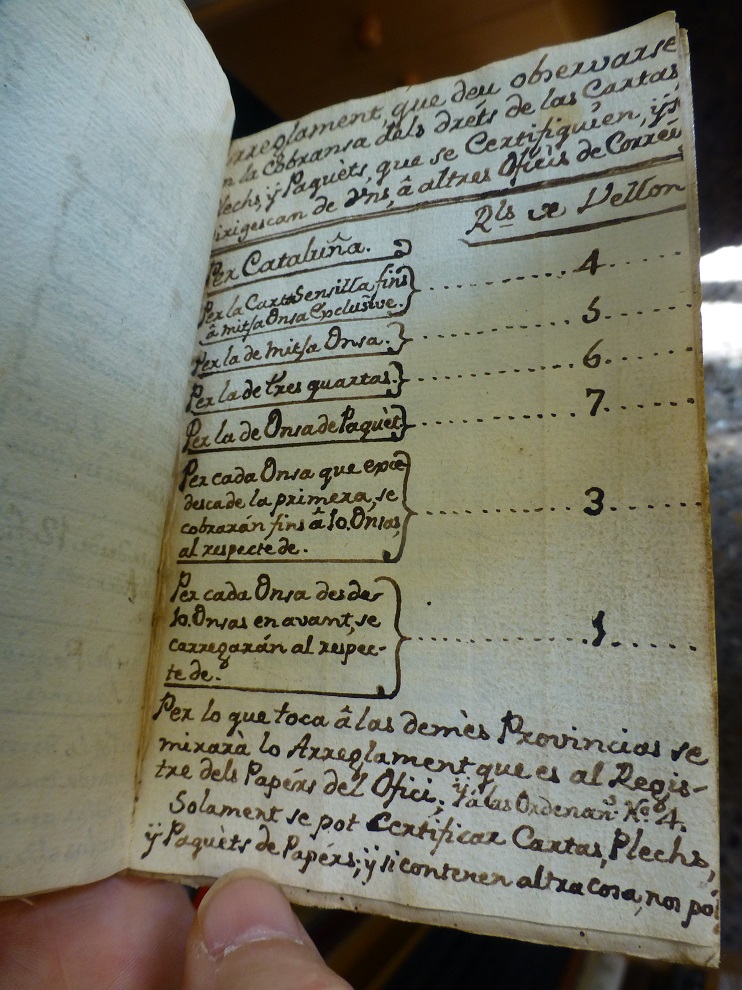 Arreglament, que deu observarse
en la Cobransa dels dréts de las Cartas
Plechs, ÿ Paquèts, que se Certifiquien, ÿ s
dirigescan de Vns, â altres Oficis de Corréu
Rls vn Vellon
Per Cataluña.
Per la Carta Sensilla fins
â mitsa Onsa Exclusive. 4
Per la de mitsa Onsa. 5
Per la de tres quartas. 6
Per la de Onsa de Paquèt 7
Per cada Onsa que exce
desca de la primera, se
cobrarán fins â 10. Onsas,
al respecte de. 3
Per cada Onsa desde
10. Onsas en avant, se
carregarán al respec-
te de. 1
Per lo que toca â las demès Provincias se
mirarà lo Arreglament que es al Regis-
tre dels Papérs del Ofici; ÿ â las Ordenan.s No. 4.
Solament se pot Certificar Cartas, Plechs,
ÿ Paquèts de Papérs; ÿ si contenen altra cosa, nos pó